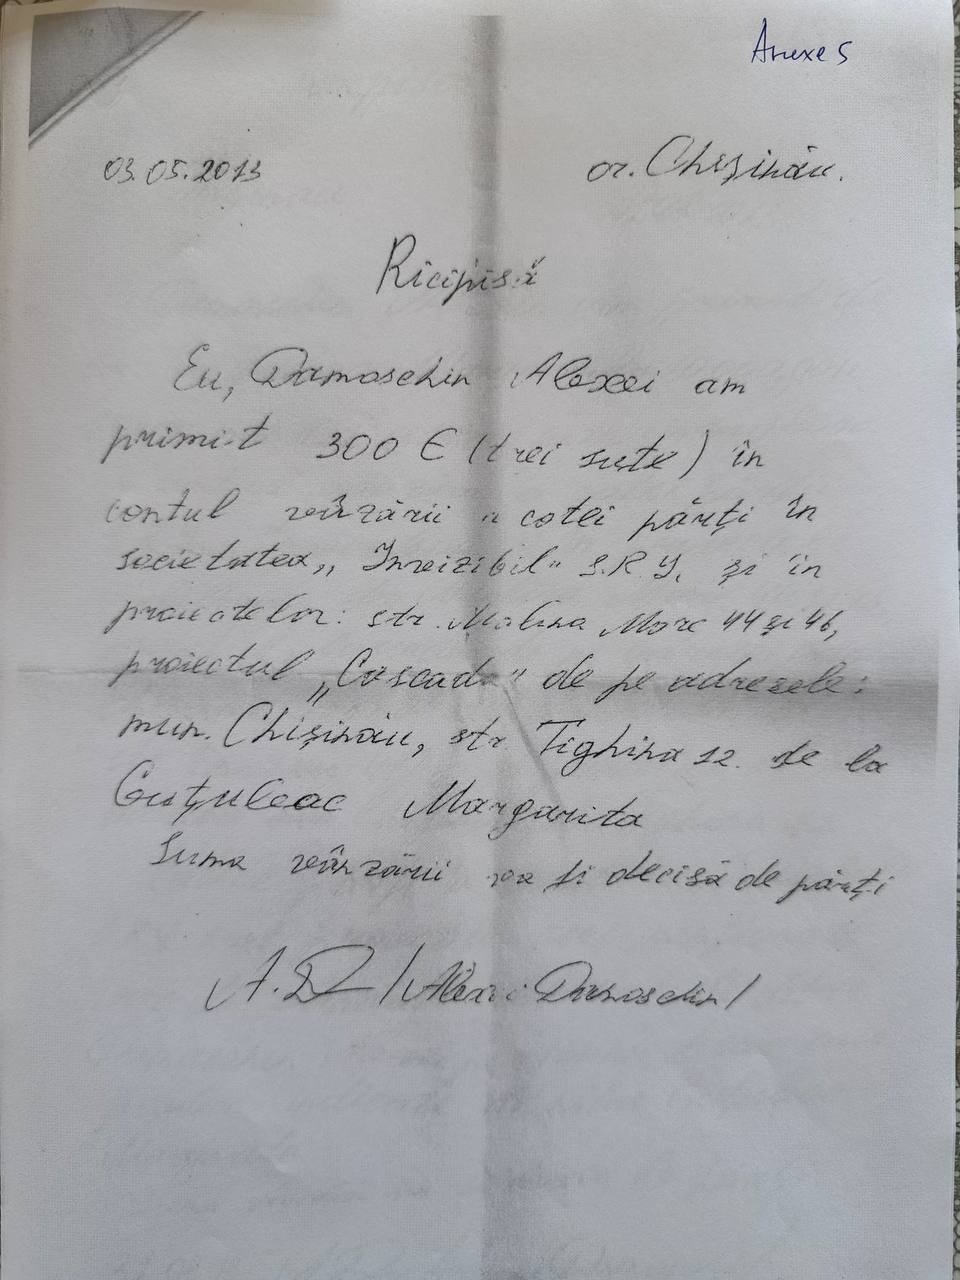 Anexe 5
03.05.2013 or. Chișinău.
Ricipisă
Eu, Damoschin Alexei am
primit 300 € (trei sute) în
contul vânzării a cotei părți în
societatea „Inveizibil" S.R.L. și în
proiectelor: str. Malina Mare 44 și 46,
proiectul „Cascada" de pe adresele:
mun. Chișinău, str. Tighina 12. de la
Guțuleac Margarita
Suma vânzării va fi decisă de părți
A.D /Alexei Damoschin/